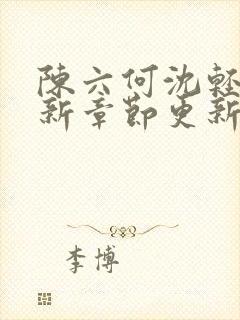 陳六何沈輕
新章節更新
李博